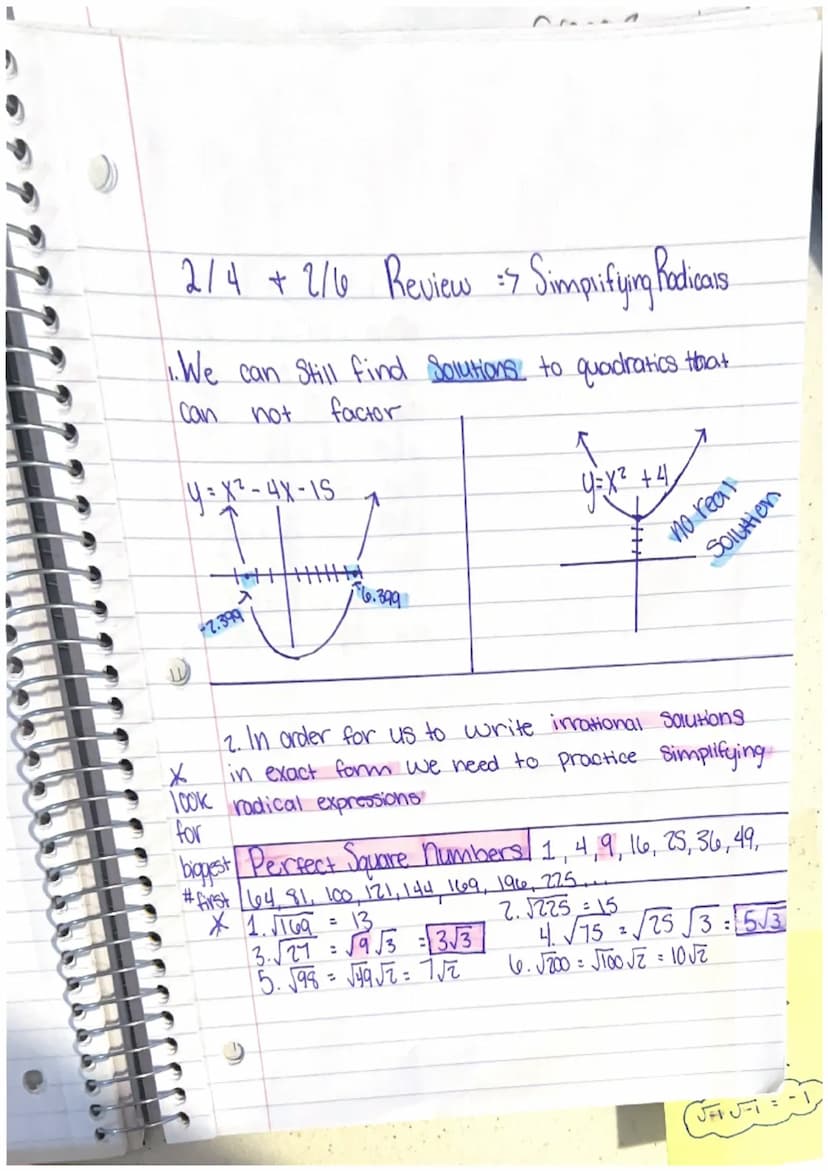 2/4 + 2/6 Review => Simplifying Radicals
1. We can Still find Solutions to quadratics that
can not factor
y = x² - 4x - 15
-2.399
6.399
y = x² + 4
no real
solution
2. In order for us to write irrational solutions
in exact form we need to practice simplifying
radical expressions
* look for biggest # first *
Perfect Square Numbers 1, 4, 9, 16, 25, 36, 49,
64, 81, 100, 121, 144, 169, 196, 225...
1. √169 = 13
2. √225 = 15
3. √27 = √9 √3 = 3√3
4. √75 = √25 √3 = 5√3
5. √98 = √49 √2 = 7√2
6. √200 = √100 √2 = 10√2
√-1 √-1 = -1